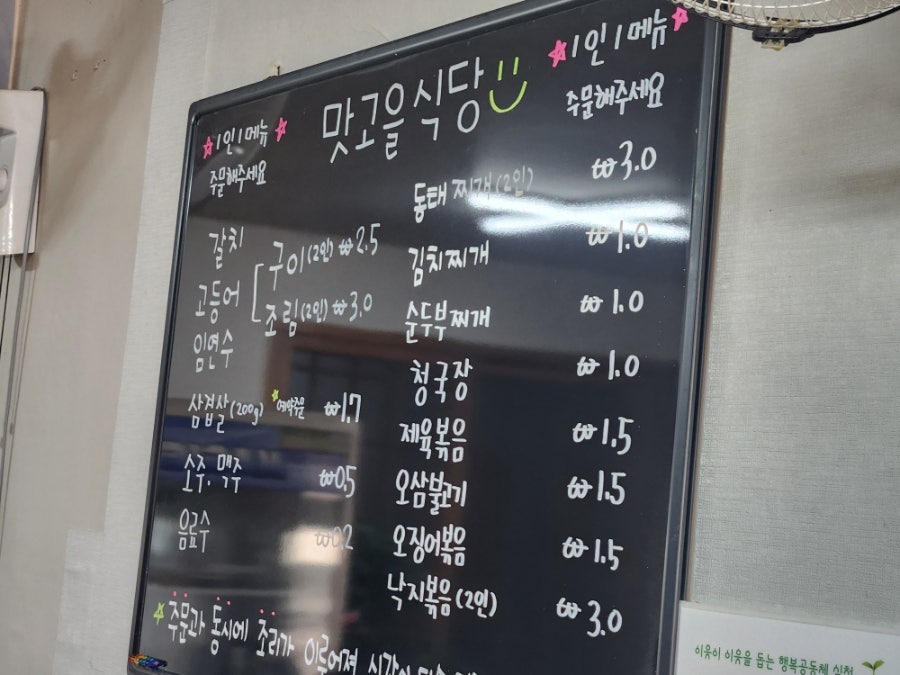 맛고을식당
1인 1메뉴
주문해주세요
갈치
고등어
임연수
구이(2인) ₩2.5
조림(2인) ₩3.0
삼겹살(200g) 예약주문 ₩1.7
소주. 맥주 ₩0.5
음료수 ₩0.2
1인 1메뉴
주문해주세요
동태 찌개(2인) ₩3.0
김치찌개 ₩1.0
순두부찌개 ₩1.0
청국장 ₩1.0
제육볶음 ₩1.5
오삼불고기 ₩1.5
오징어볶음 ₩1.5
낙지볶음(2인) ₩3.0
주문과 동시에 조리가 이루어져 시간이
이웃이 이웃을 돕는 행복공동체